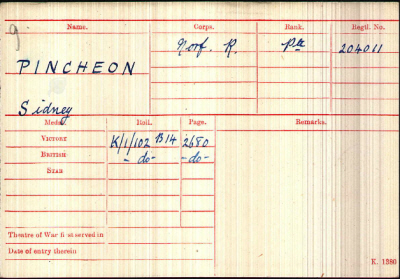 Name. Corps. Rank. Regtl. No.
PINCHEON Norf. R. Pte 204011
Sidney
Medal. Roll. Page. Remarks.
VICTORY K/1/102 B14 2680
BRITISH - do - - do -
STAR
Theatre of War first served in
Date of entry therein
K. 1380